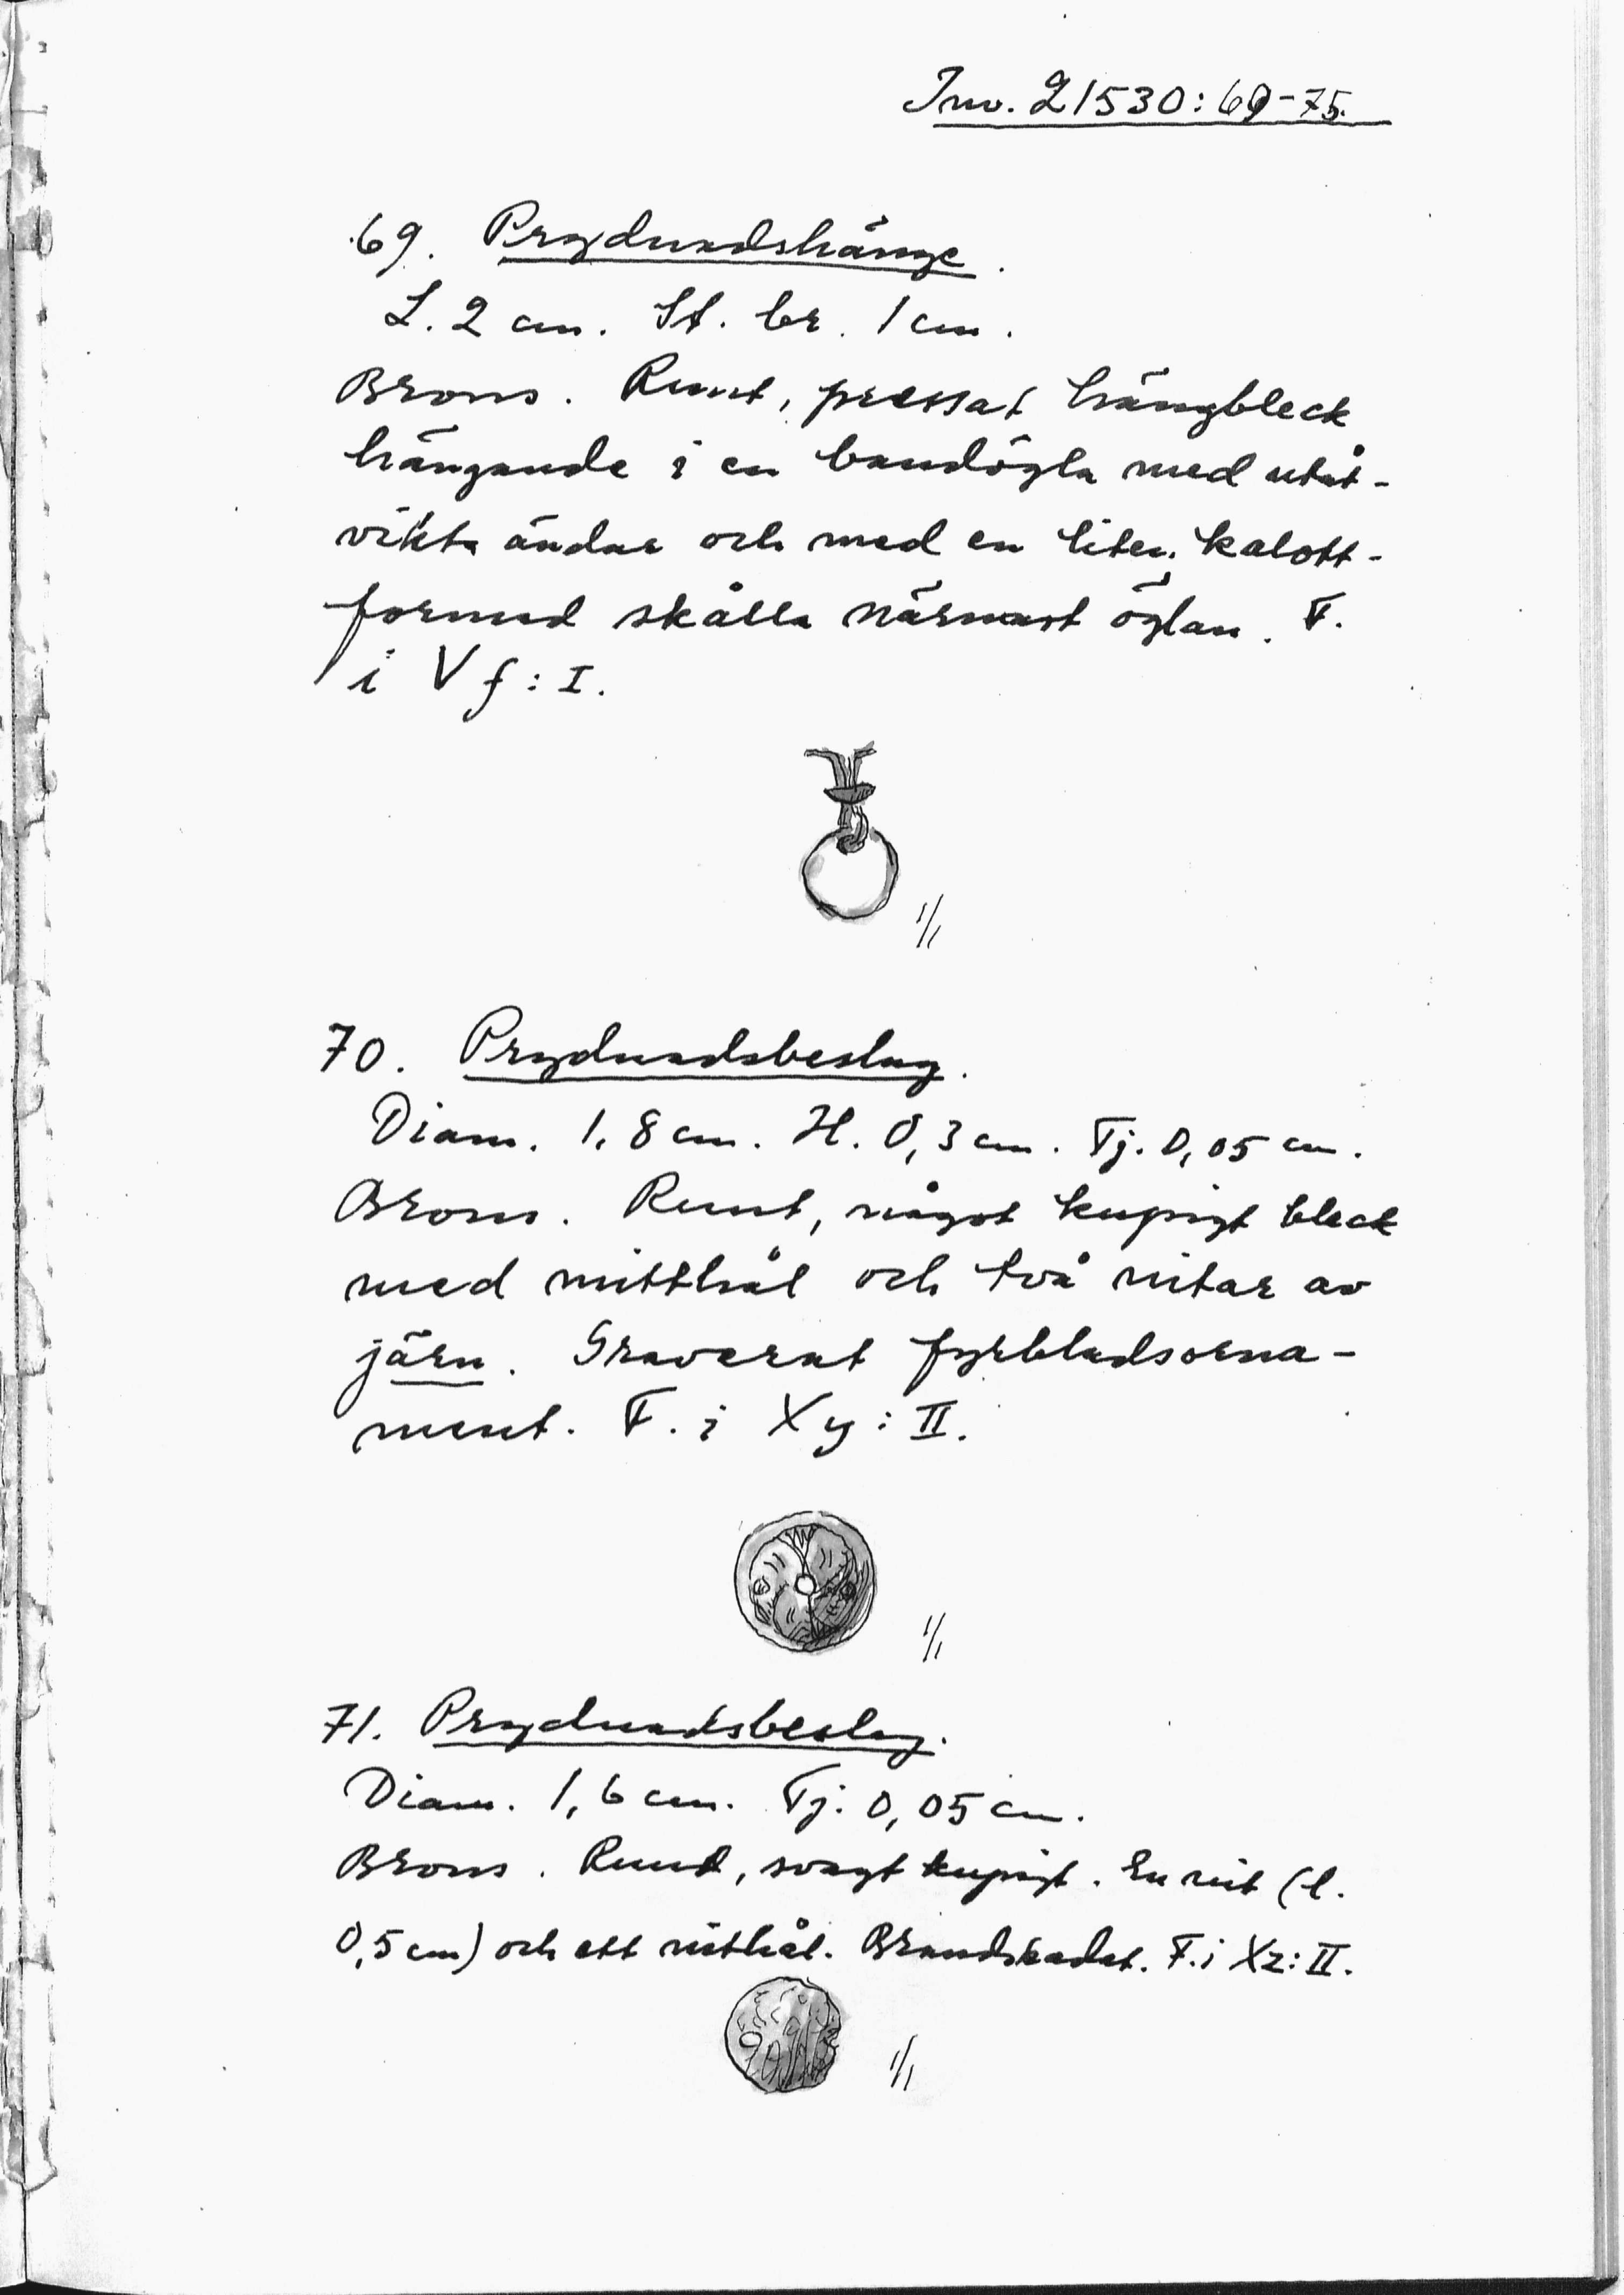 Inv. 21530:69-75.
69. Prydnadshänge.
L. 2 cm. St. br. 1 cm.
Brons. Runt, pressat hängbleck
hängande i en bandögla med utåt-
vikta ändar och med en liten, kalott-
formad skålla närmast öglan. F.
i Vf:I.
1/1
70. Prydnadsbeslag.
Diam. 1,8 cm. H. 0,3 cm. Tj. 0,05 cm.
Brons. Runt, något kupigt bleck
med mitthål och två nitar av
järn. Graverat fyrbladsorna-
ment. F. i Xy:II.
1/1
71. Prydnadsbeslag.
Diam. 1,6 cm. Tj. 0,05 cm.
Brons. Runt, svagt kupigt. En nit (l.
0,5 cm) och ett nithål. Brandskadat. F. i Xz:II.
1/1